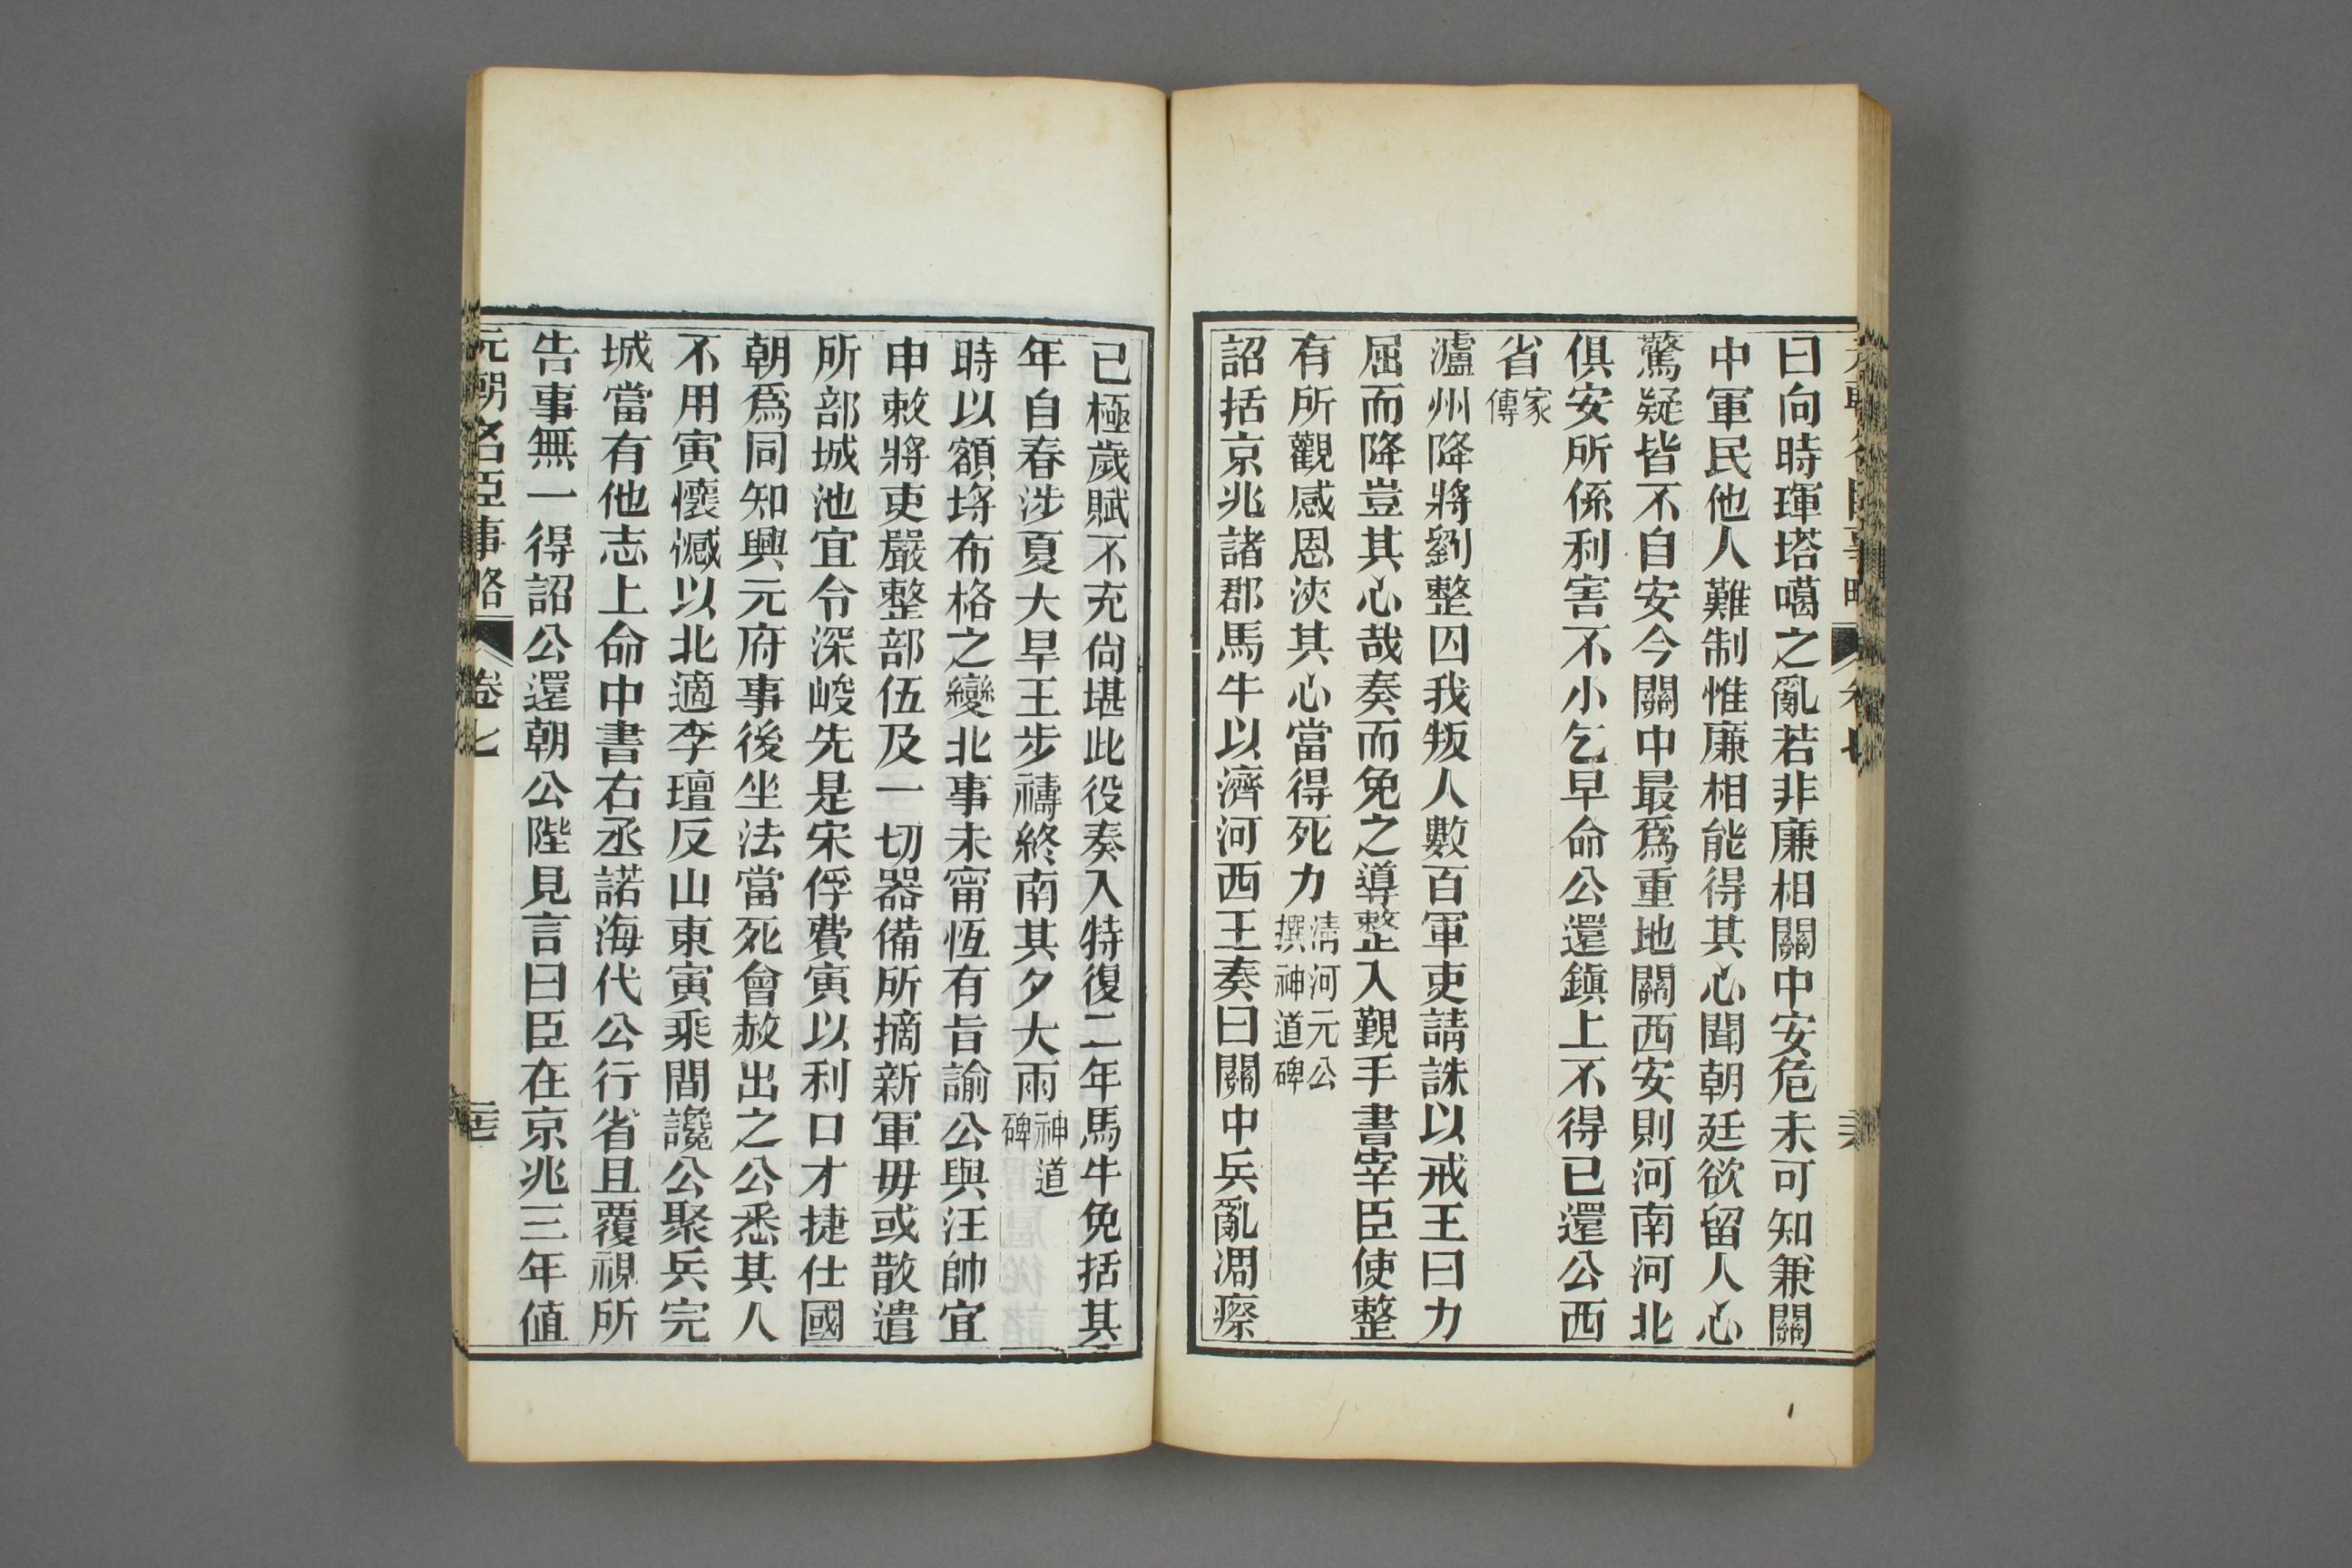 曰向時琿塔噶之亂若非廉相關中安危未可知兼關
中軍民他人難制惟廉相能得其心聞朝廷欲留人心
驚疑皆不自安今關中最爲重地關西安則河南河北
俱安所係利害不小乞早命公還鎮上不得已還公西
省家傳
瀘州降將劉整囚我叛人數百軍吏請誅以戒王曰力
屈而降豈其心哉奏而免之導整入覲手書宰臣使整
有所觀感恩浹其心當得死力清河元公撰神道碑
詔括京兆諸郡馬牛以濟河西王奏曰關中兵亂凋瘵
已極歲賦不充尙堪此役奏入特復二年馬牛免括其
年自春涉夏大旱王步禱終南其夕大雨神道碑
時以額埒布格之變北事未甯恆有旨諭公與汪帥宜
申敕將吏嚴整部伍及一切器備所摘新軍毋或散遣
所部城池宜令深峻先是宋俘費寅以利口才捷仕國
朝爲同知興元府事後坐法當死會赦出之公悉其人
不用寅懷憾以北適李璮反山東寅乘間讒公聚兵完
城當有他志上命中書右丞諾海代公行省且覆視所
告事無一得詔公還朝公陛見言曰臣在京兆三年値
元朝名臣事略 卷七 二七